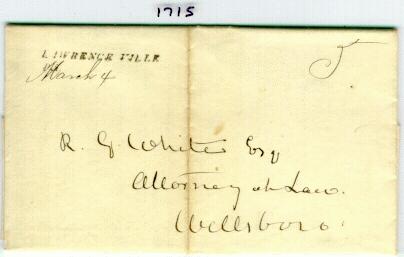 1715
LAWRENCEVILLE
March 4
5
R. G. White Esq
Attorney at Law.
Wellsboro.